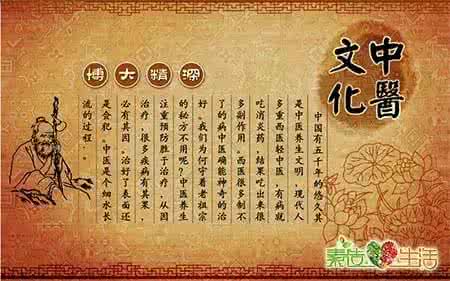 中醫
文化
博大精深
中国有五千年的悠久其
是中医养生文明，现代人
多重西医轻中医，有病就
吃消炎药，结果吃出来很
多副作用。西医很多制不
了的病中医确能神奇的治
好。我们为何守着老祖宗
的秘方不用呢？中医养生
注重预防胜于治疗，从因
治疗，很多疾病有其果，
必有其因。治好了表面还
是会犯。中医是个细水长
流的过程．。
生活